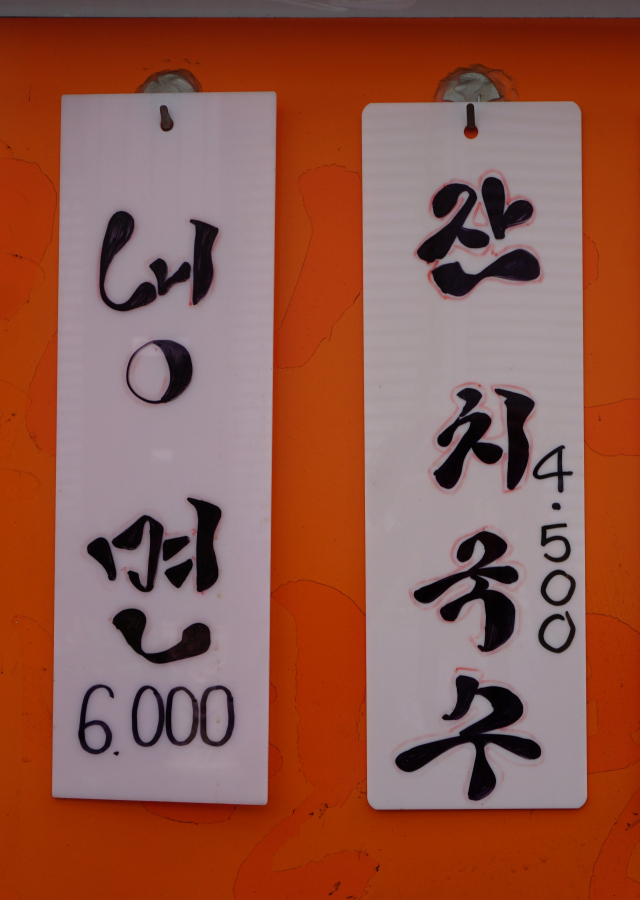 냉면
6.000
잔치국수
4.500